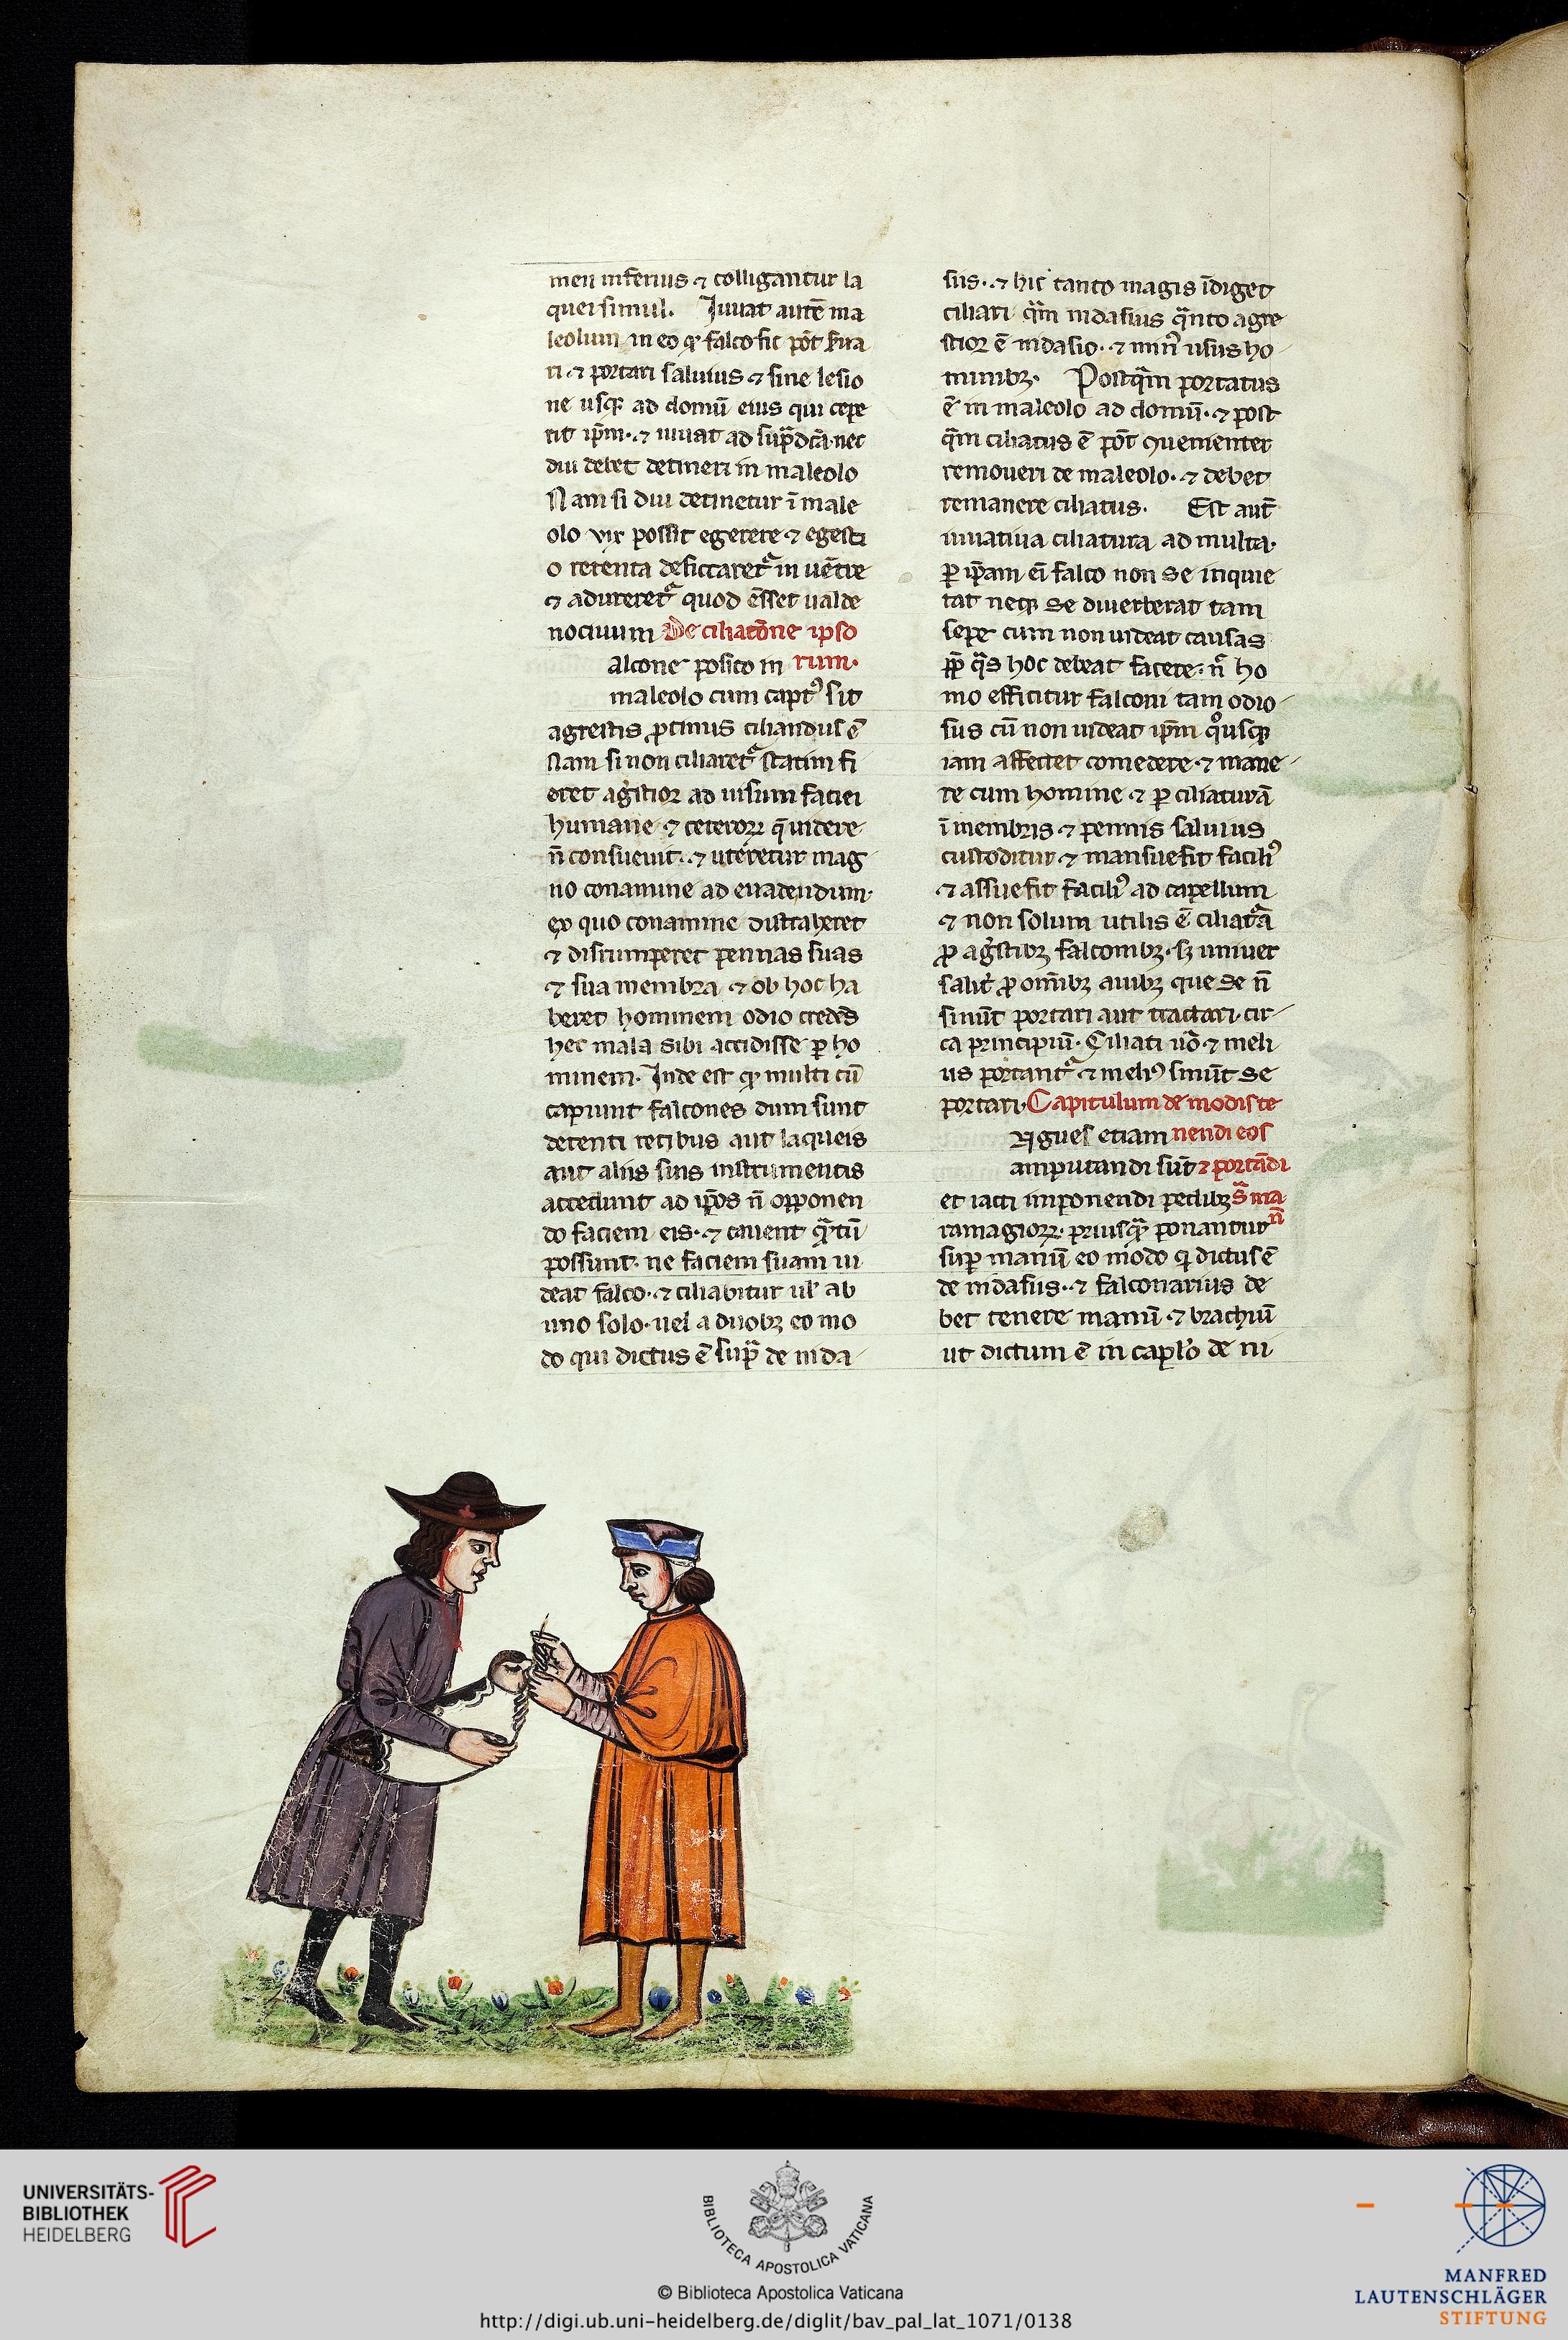 men inferius ⁊ colligantur la
quei simul. Iuuat autē ma
leolum in eo qꝫ falco sic pōt
ri ⁊ portari saluius ⁊ sine lesio
ne usqꝫ ad domū eius qui cepe
rit ip̄m. ⁊ iuuat ad sup̄dcā. nec
diu debet detineri in maleolo
Nam si diu detinetur ī male
olo vix possit egerere ⁊ egesti
o retenta desiccaretᷣ in uētre
⁊ adureretᷣ quod ēsset ualde
nociuum De ciliatōne ipso
alcone posito in rum.
maleolo cum captꝰ sit
agrestis ꝓtinus ciliandus ē
Nam si non ciliaretᷣ statim fi
eret ag̓stior ad uisum faciei
humane ⁊ ceteroꝝ q̄ uidere
n̄ consueuit. ⁊ uteretur mag
no conamine ad euadendum.
ex quo conamine distraheret
⁊ disrumperet pennas suas
⁊ sua membra ⁊ ob hoc ha
beret hominem odio credēs
hec mala sibi accidisse ꝑ ho
minem. Inde est qꝫ multi cū
capiunt falcones dum sunt
detenti retibus aut laqueis
aut aliis suis instrumentis
accedunt ad ip̄os n̄ opponen
do faciem eis. ⁊ cauent qᷓtū
possunt. ne faciem suam ui
deat falco. ⁊ ciliabitur ul̓ ab
uno solo. uel a duobꝫ eo mo
do qui dictus ē supᷓ de nida
sius. ⁊ hic tanto magis īdiget
ciliari qᷓm nidasius qᷓnto agre
stior ē nidasio. ⁊ minꝰ usus ho
minibꝫ. Postqᷓm portatus
ē in maleolo ad domū. ⁊ post
qᷓm ciliatus ē pōt ꝯuenienter
remoueri de maleolo. ⁊ debet
remanere ciliatus. Est aut̄
iuuatiua ciliatura ad multa.
ꝑ ip̄am ei falco non se inquie
tat neqꝫ se diuerberat tam
sepe cum non uideat causas
ꝓp̄ qᷓs hoc debeat facere. n̄ ho
mo efficitur falconi tam odio
sus cū non uideat ip̄m qͦusqꝫ
iam affectet comedere. ⁊ mane
re cum homine ⁊ ꝑ ciliaturā
ī membris ⁊ pennis saluius
custoditur ⁊ mansuefit faciliꝰ
⁊ assuefit faciliꝰ ad capellum
⁊ non solum utilis ē ciliatᷓa
ꝓ ag̓stibꝫ falconibꝫ. sꝫ uniuer
salit̓ ꝓ om̄ibꝫ auibꝫ que se n̄
sinūt portari aut tractari cir
ca principiū. Ciliati uō ⁊ meli
us portantᷣ ⁊ meliꝰ sinūt se
portari. Capitulum de modis te
Vngues etiam nendi eos
amputandi sūt ⁊ portādi
et iacti imponendi pedibꝫ sᷓ ma
ramagioꝝ. priusqᷓꝫ ponantur n̄
suꝑ manū eo modo qͥ dictus ē
de nidasiis. ⁊ falconarius de
bet tenere manū ⁊ brachiū
ut dictum ē in capl̓o de ni
UNIVERSITÄTS-
BIBLIOTHEK
HEIDELBERG
BIBLIOTECA APOSTOLICA VATICANA
© Biblioteca Apostolica Vaticana
http://digi.ub.uni-heidelberg.de/diglit/bav_pal_lat_1071/0138
MANFRED
LAUTENSCHLÄGER
STIFTUNG